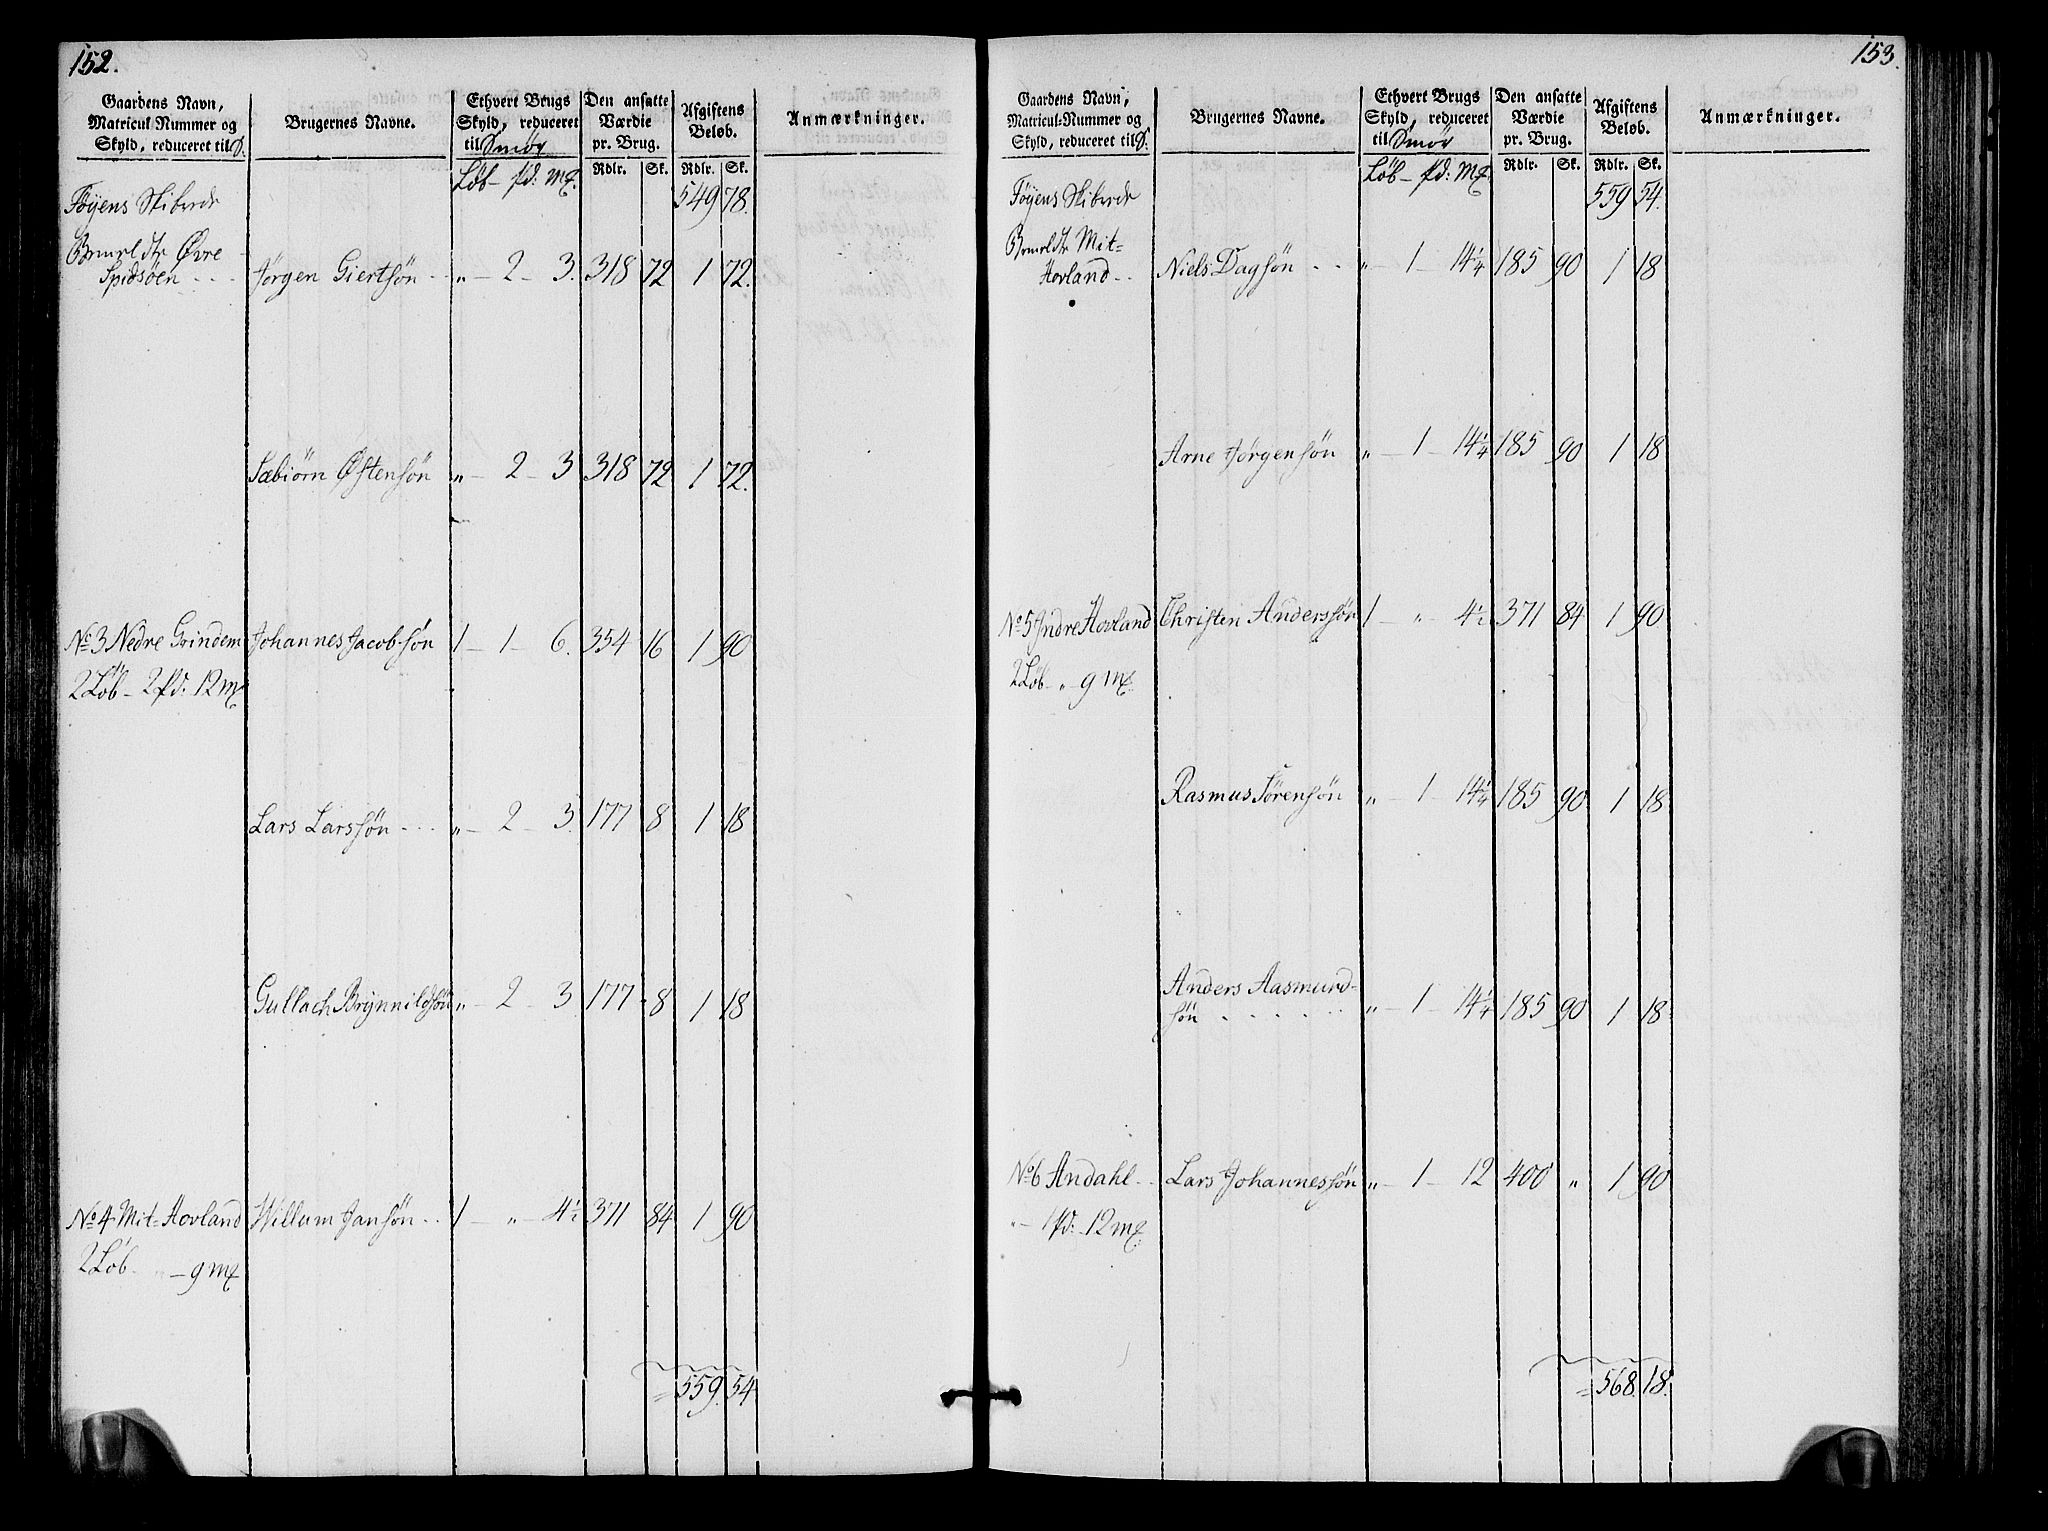 152.
Gaardens Navn, Matricul-Nummer og Skyld, reduceret til S. | Brugernes Navne. | Ethvert Brugs Skyld, reduceret til Smör | Den ansatte Værdie pr. Brug. | Afgiftens Beløb. | Anmærkninger.
Löb – pd: m&. | Rdlr. | Sk. | Rdlr. | Sk.
Föyens Skibrede | 549 | 78.
Øvre
Spidsöen - - - | Jörgen Giertsön - - | „ – 2 – 3. | 318 | 72 | 1 | 72.
Sæbiörn Østensön | „ – 2 – 3 | 318 | 72 | 1 | 72.
No 3 Nedre Grindem | Johannes Jacobsön | 1 – 1 – 6. | 354 | 16 | 1 | 90
2 Löb – 2 pd: 12 m&
Lars Larssön - - - | „ – 2 – 3. | 177 | 8 | 1 | 18
Gullach Brynnildsön | „ – 2 – 3 | 177 | 8 | 1 | 18
No 4 Mit-Hovland | Willum Jansön - - | 1 – „ – 4½ | 371 | 84 | 1 | 90
2 Löb – 9 m&
= 559. | 54
153.
Gaardens Navn, Matricul-Nummer og Skyld, reduceret til S. | Brugernes Navne. | Ethvert Brugs Skyld, reduceret til Smör | Den ansatte Værdie pr. Brug. | Afgiftens Beløb. | Anmærkninger.
Löb – pd: m&. | Rdlr. | Sk. | Rdlr. | Sk.
Föyens Skibrede | 559 | 54.
Mit-
Hovland - - | Niels Dagsön - - | „ – 1 – 14¼ | 185 | 90 | 1 | 18
Arne Jörgensön | „ – 1 – 14¼ | 185 | 90 | 1 | 18
No 5 Indre Hovland | Christen Anderssön | 1 – „ – 4½ | 371 | 84 | 1 | 90
2 Löb – „ 9 m&.
Rasmus Sörensön | „ – 1 – 14¼ | 185 | 90 | 1 | 18
Anders Aasmund-
sön - - - - - - | „ – 1 – 14¼ | 185 | 90 | 1 | 18
No 6 Andahl - - | Lars Johannessön | „ – 1 – 12 | 400 | „ | 1 | 90
„ – 1 pd: 12 m&.
= 568. | 18.